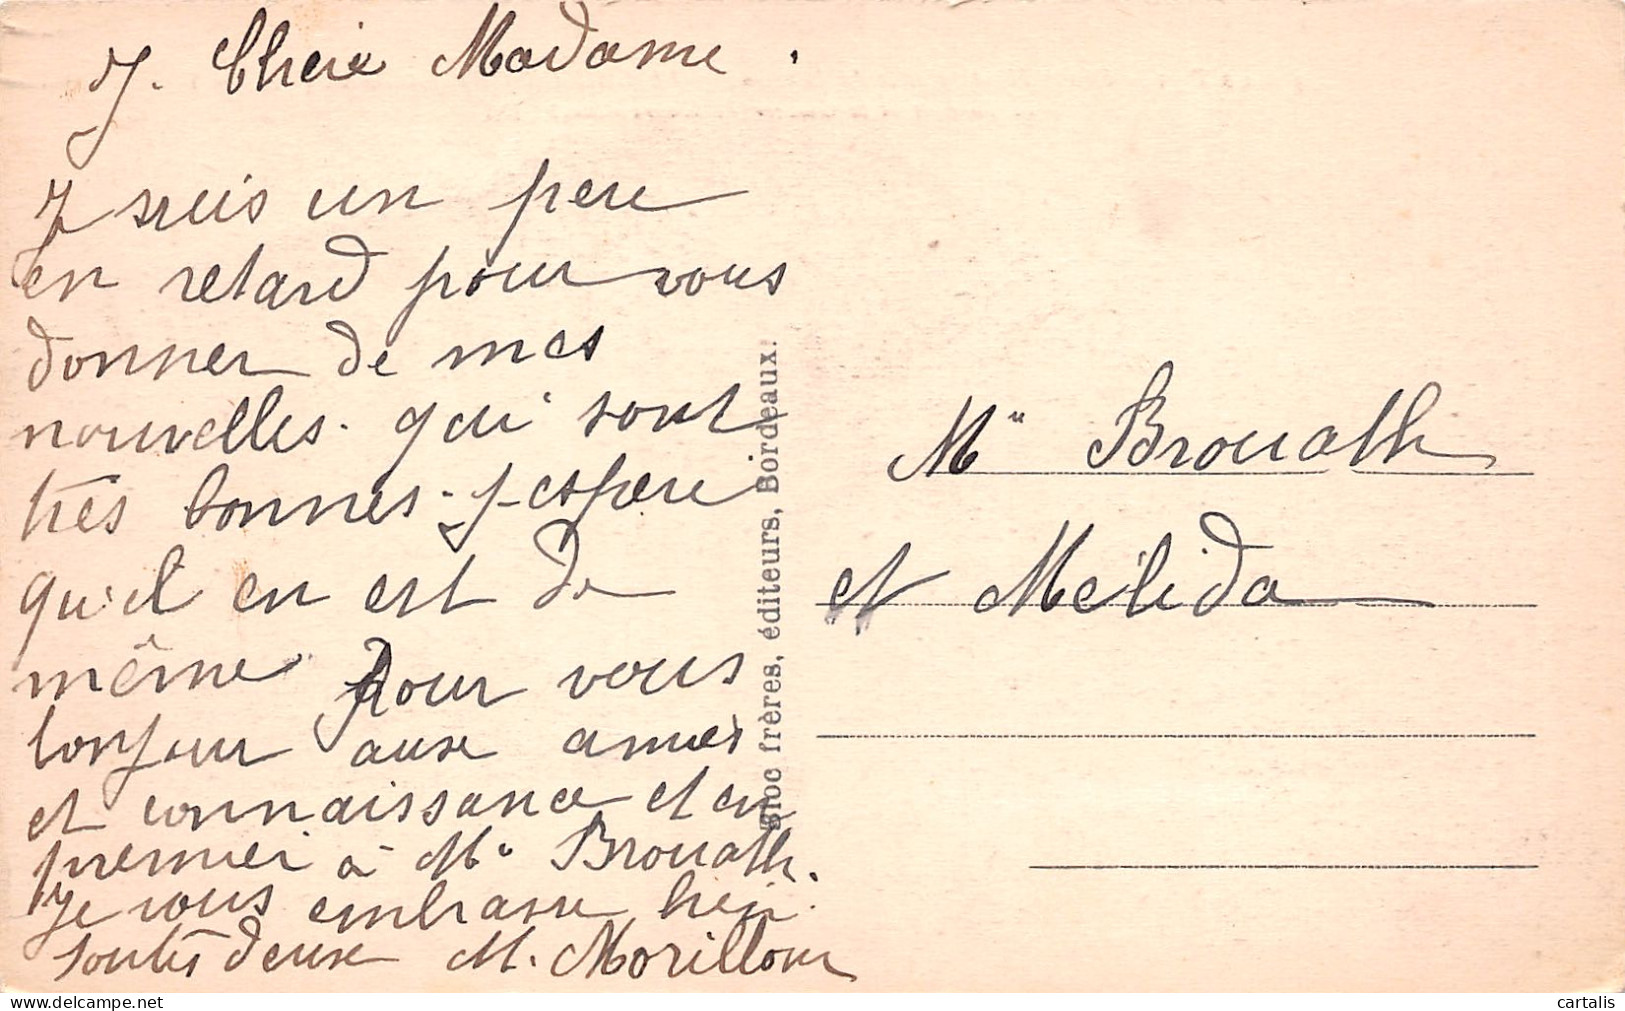 Chere Madame .
J suis un peu
en retard pour vous
donner de mes
nouvelles. qui sont
très bonnes. j-espere
qu'il en est de
même pour vous
bonjour aux amies
et connaissance et en
premier à Mr Brouath.
Je vous embrasse bien
toutes deux M. Morilloux
Mme Brouath
et Mélida
Sloc frères, éditeurs, Bordeaux.
cartalis
www.delcampe.net